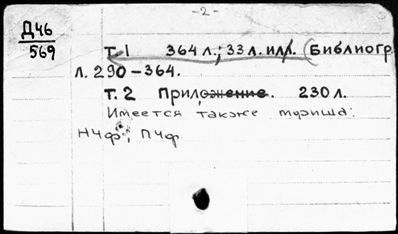 -2-
Д46
569
т. 1 364 л.; 33 л. илл. (Библиогр.
л. 290-364.
т. 2 Приложение. 230 л.
Имеется также
НЧф, ПЧф